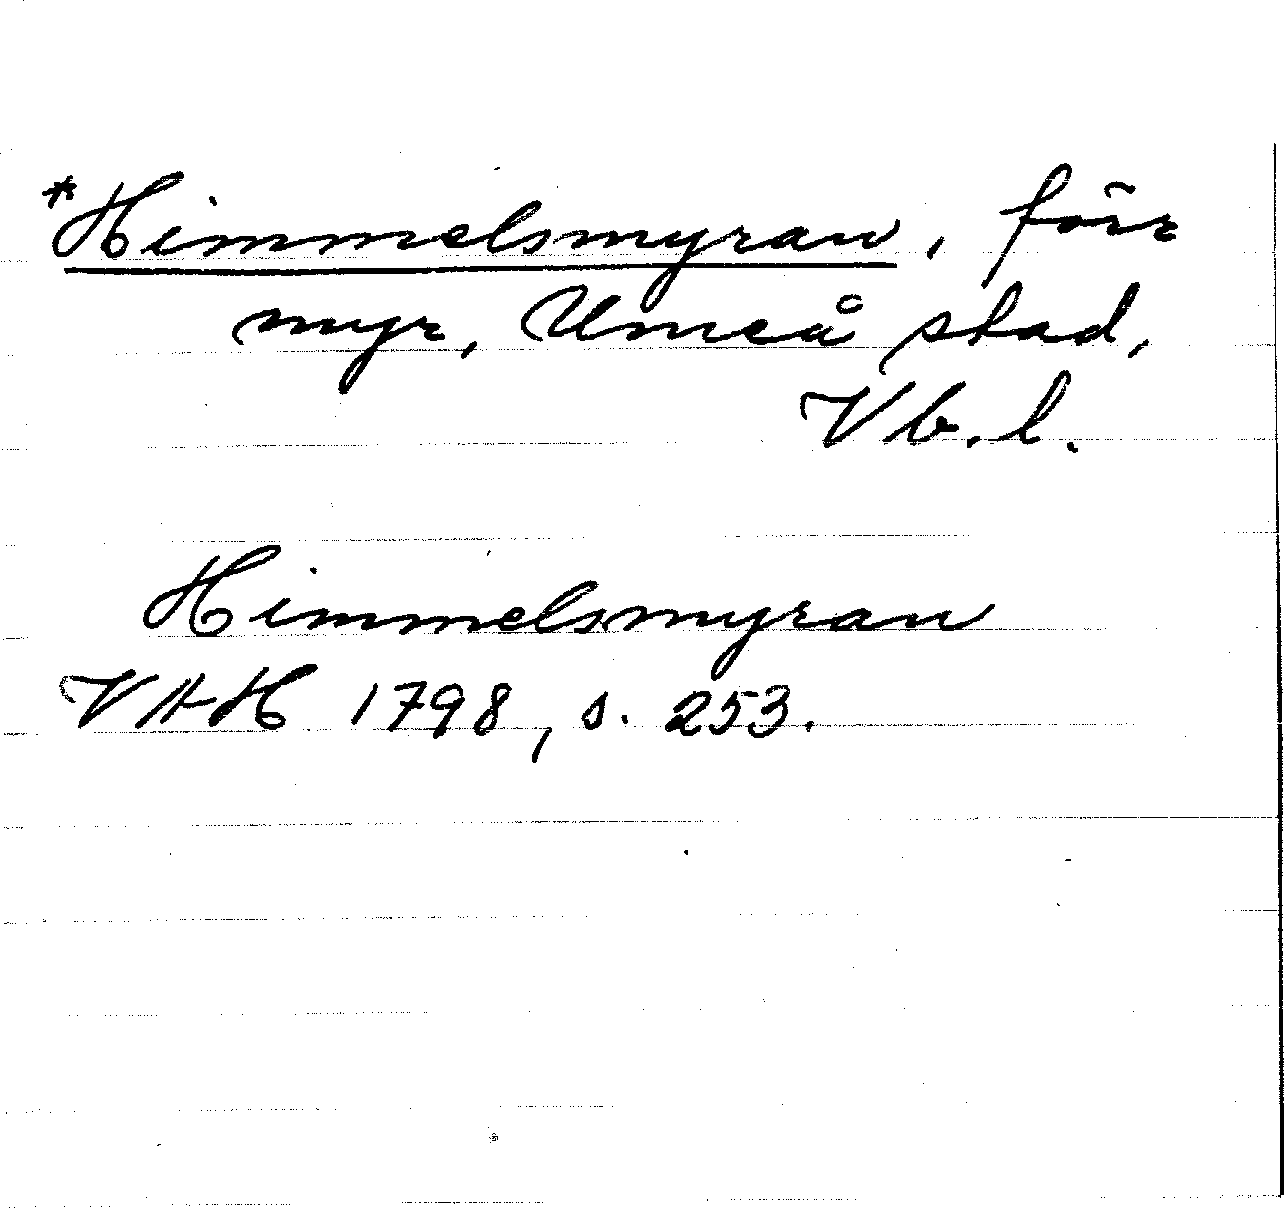 *Himmelsmyran, förr
myr, Umeå stad,
Vb. l.
Himmelsmyran
VAH 1798, s. 253.